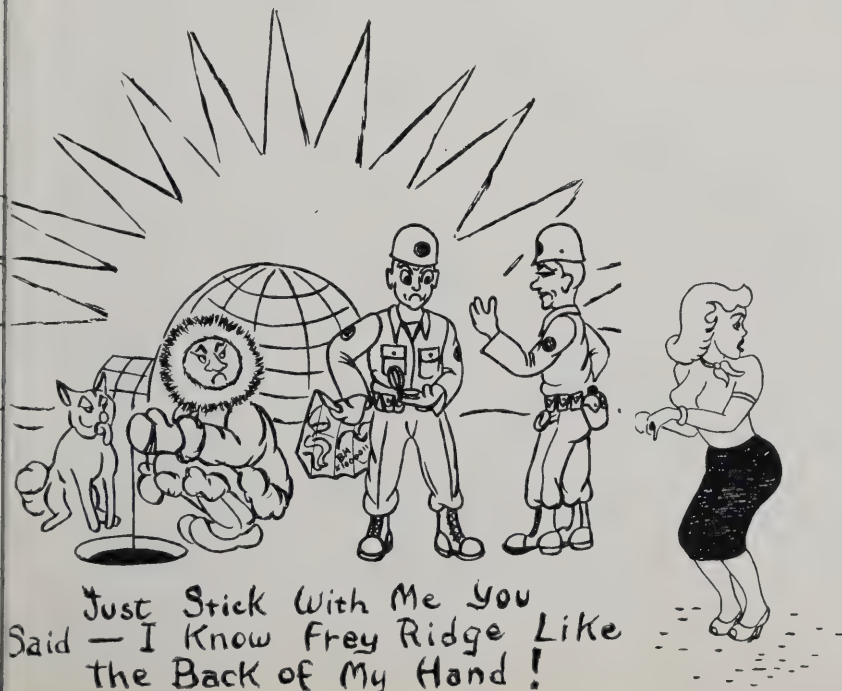 Just Stick With Me You
Said — I Know Frey Ridge Like
the Back of My Hand !